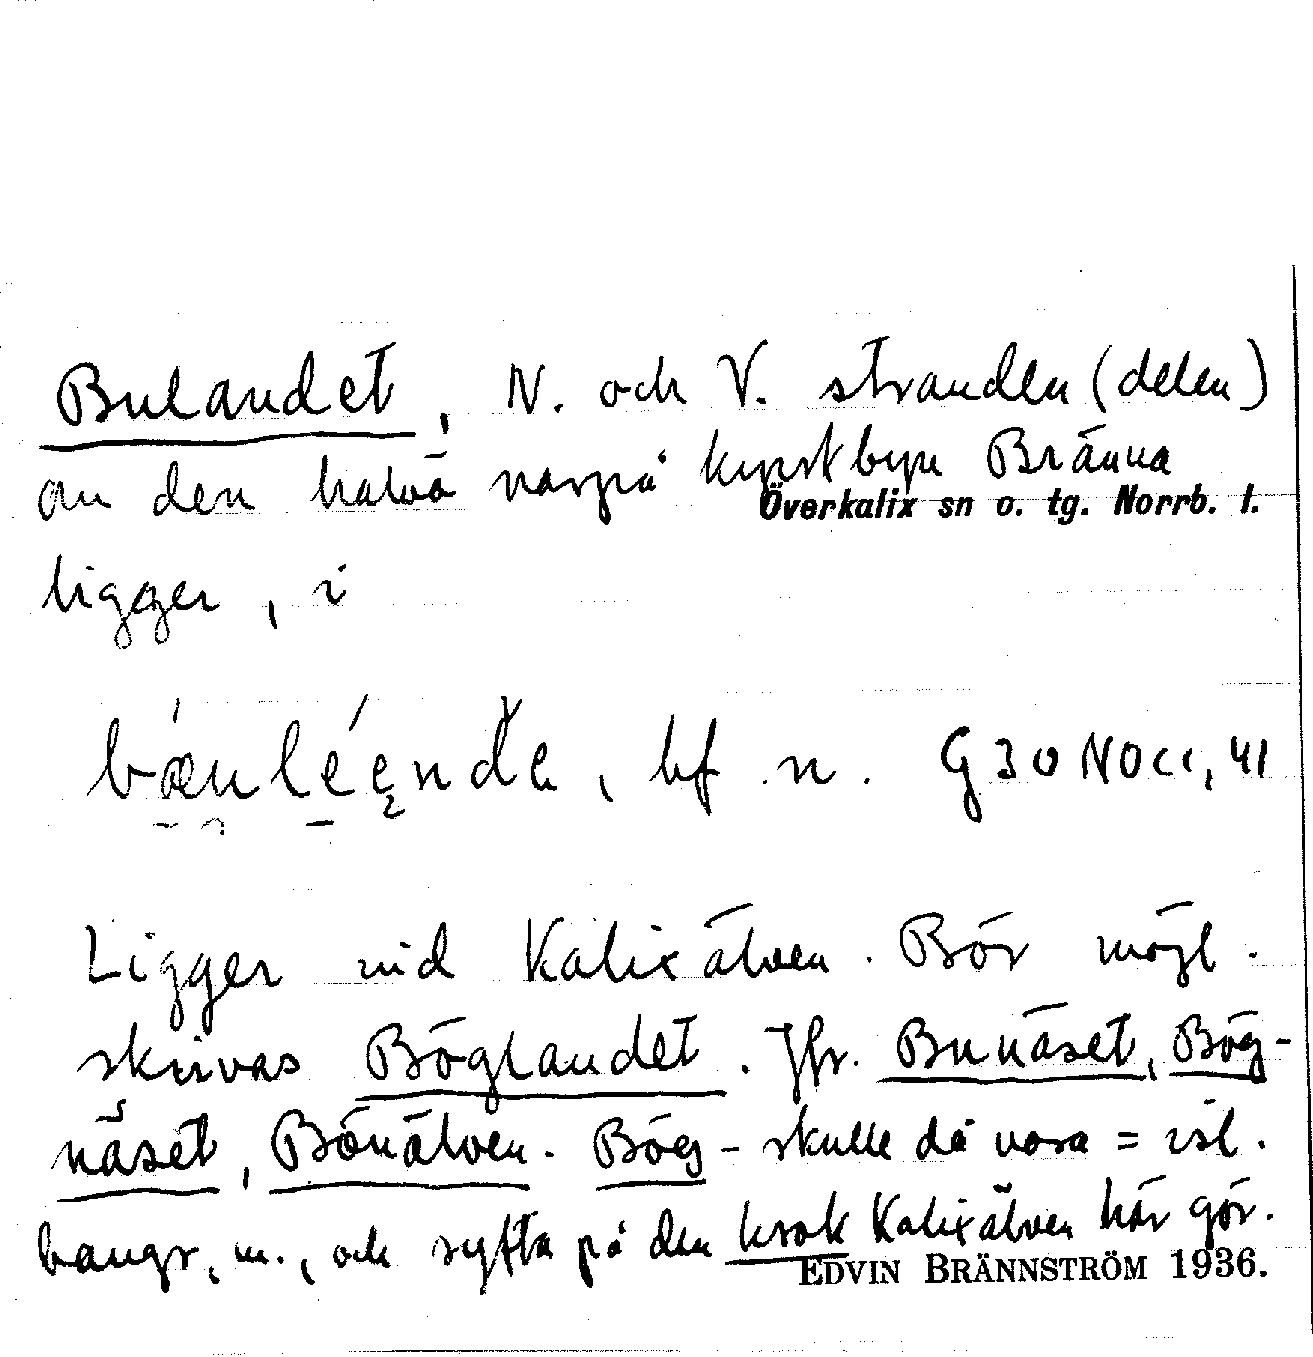 Bulandet, N. och V. stranden (delen)
av den halvö varpå kyrkbyn Bränna
Överkalix sn o. tg. Norrb. l.
ligger, i
bf. n. G 30 NOcc, 41
Ligger vid Kalixälven. Bör möjl.
skrivas Böglandet. Jfr. Bunäset, Bög-
näset, Bönälven. Bög- skulle då vara = isl.
baugr, m., och syfta på den krok Kalixälven här gör.
EDVIN BRÄNNSTRÖM 1936.